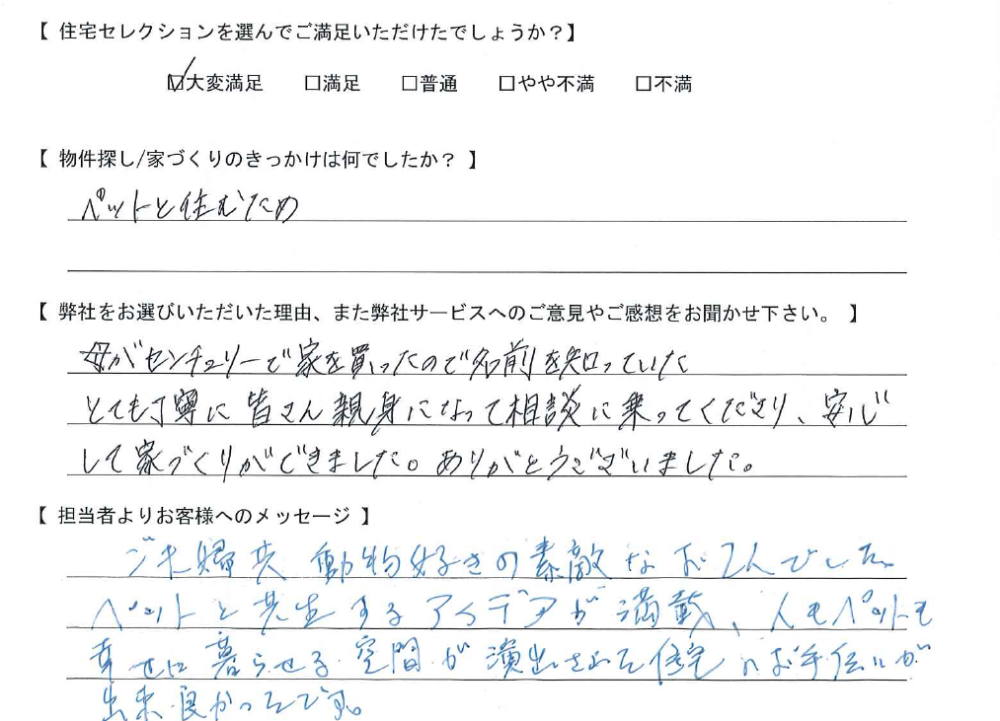 【 住宅セレクションを選んでご満足いただけたでしょうか？】
☑大変満足 □満足 □普通 □やや不満 □不満
【 物件探し/家づくりのきっかけは何でしたか？ 】
ペットと住むため
【 弊社をお選びいただいた理由、また弊社サービスへのご意見やご感想をお聞かせ下さい。 】
母がセンチュリーで家を買ったので名前を知っていた
とても丁寧に皆さん親身になって相談に乗ってくださり、安心
して家づくりができました。ありがとうございました。
【 担当者よりお客様へのメッセージ 】
ご夫婦共動物好きの素敵なお2人でした。
ペットと共生するアイデアが満載、人もペットも
幸せに暮らせる空間が演出された住宅のお手伝いが
出来良かったです。